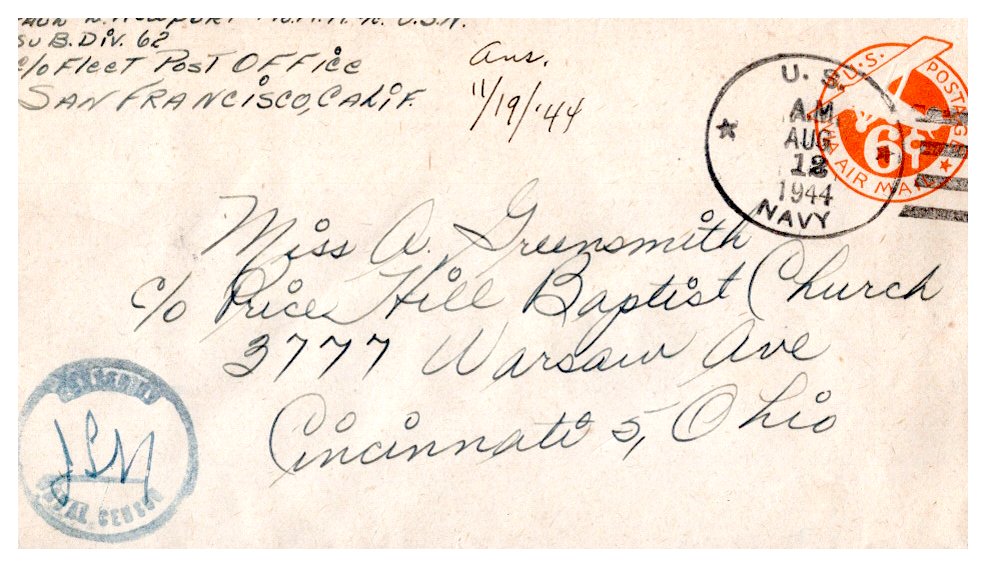 U.S.N.
SUB. DIV. 62
c/o FLEET POST OFFICE
SAN FRANCISCO, CALIF.
Ans.
11/19/'44
U. S.
A.M.
AUG
12
1944
NAVY
U.S. POSTAGE
6¢
VIA AIR MAIL
Miss A. Greensmith
c/o Price Hill Baptist Church
3777 Warsaw Ave
Cincinnati 5, Ohio
PASSED BY
NAVAL CENSOR